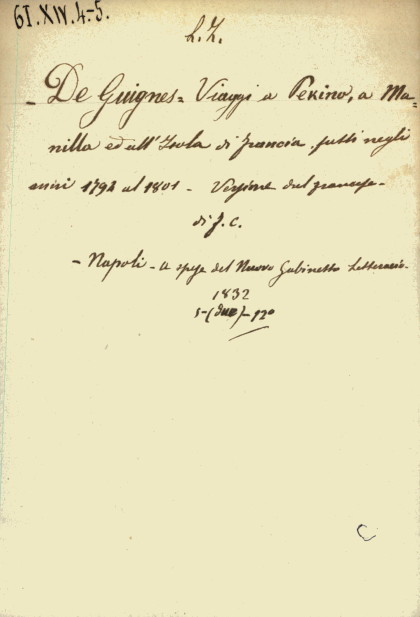 61.XIV.4-5.
L.Z.
- De Guignes = Viaggi a Pekino, a Ma-
nilla ed all'Isola di Francia fatti negli
anni 1792 al 1801 - Versione dal francese -
di F. C.
- Napoli - a spese del Nuovo Gabinetto Letterario -
1832
(due) - 12°